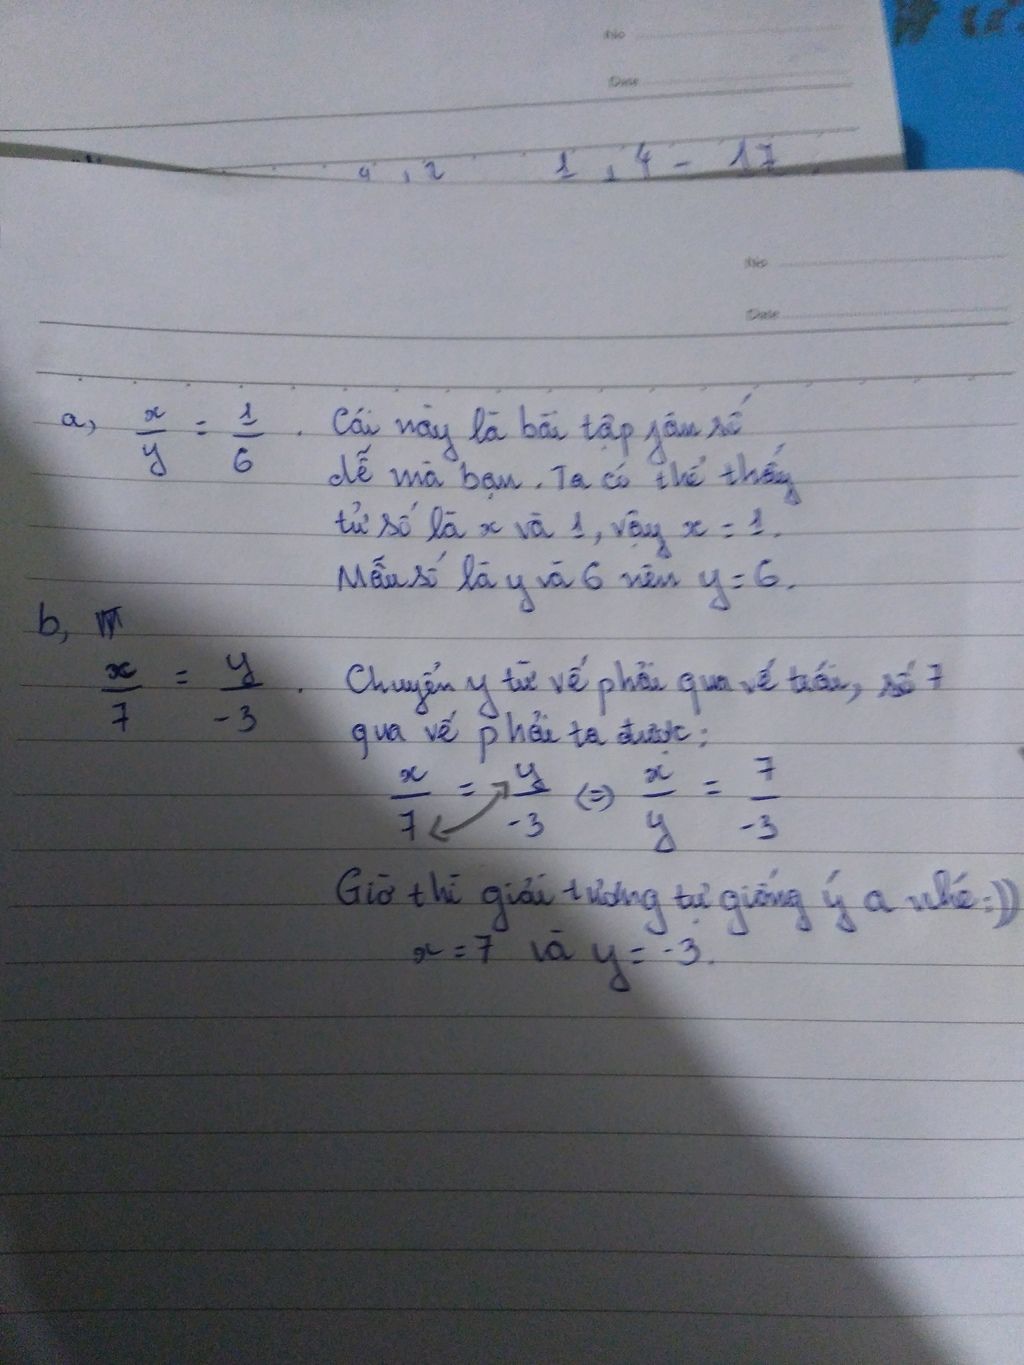 No
Date
4 , 2 1 , 4 - 17
No
Date
a, x/y = 1/6 . Cái này là bài tập phân số
dễ mà bạn. Ta có thể thấy
tử số là x và 1, vậy x = 1.
Mẫu số là y và 6 nên y = 6.
b,
x/7 = y/-3 . Chuyển y từ vế phải qua vế trái, số 7
qua vế phải ta được:
x/7 = y/-3 (=) x/y = 7/-3
Giờ thì giải tương tự giống ý a nhé:))
x = 7 và y = -3.